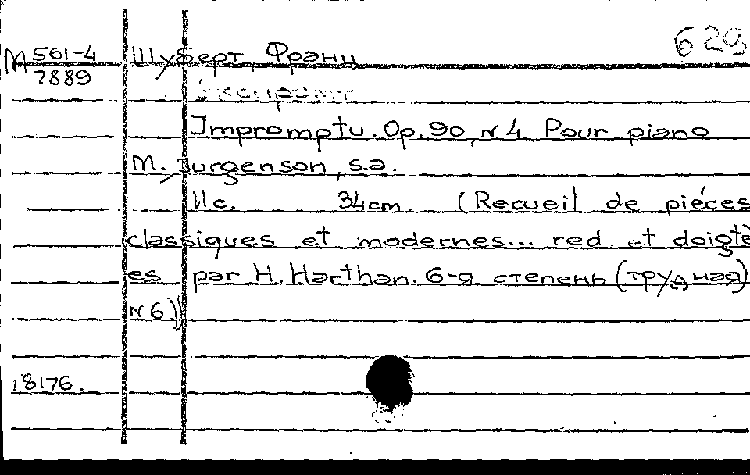 629
М 561-4 Шуберт, Франц
7889
Экспромт
Impromptu. Op. 90, N 4 Pour piano
M. Jurgenson, s.a.
11c. 34cm. (Recueil de piéces
classiques et modernes... red. et doigté
es par H. Harthan. 6-я степень (трудная)
N6))
18176.